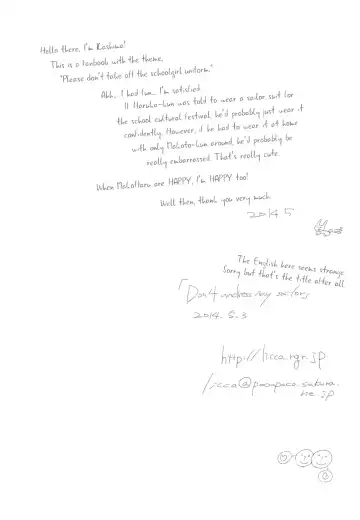 Hello there, I'm Kashima!
This is a fanbook with the theme,
"Please don't take off the schoolgirl uniform."
Ahh... I had fun... I'm satisfied
If Haruka-kun was told to wear a sailor suit for
the school cultural festival, he'd probably just wear it
confidently. However, if he had to wear it at home
with only Makoto-kun around, he'd probably be
really embarrassed. That's really cute.
When MakoHaru are HAPPY, I'm HAPPY too!
Well then, thank you very much.
2014 5
The English here seems strange.
Sorry but that's the title after all.
「Don't undress my sailor」
2014. 5. 3
http://licca.rgr.jp
licca@peopeco.sakura.
ne.jp